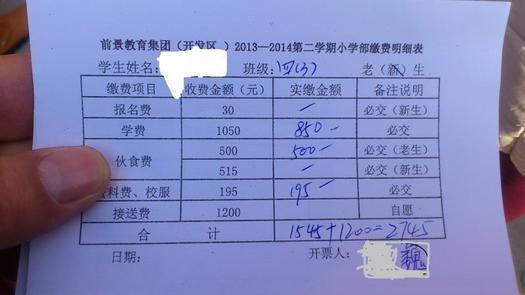 前景教育集团（开发区 ）2013—2014第二学期小学部缴费明细表
学生姓名: 班级:四(3) 老（新）生
缴费项目 收费金额（元） 实缴金额 备注说明
报名费 30 — 必交（新生）
学费 1050 850— 必交
伙食费 500 500— 必交（老生）
515 — 必交（新生）
料费、校服 195 195— 必交
接送费 1200 自愿
合 计 1545+1200=2745
日期: 开票人: 魏